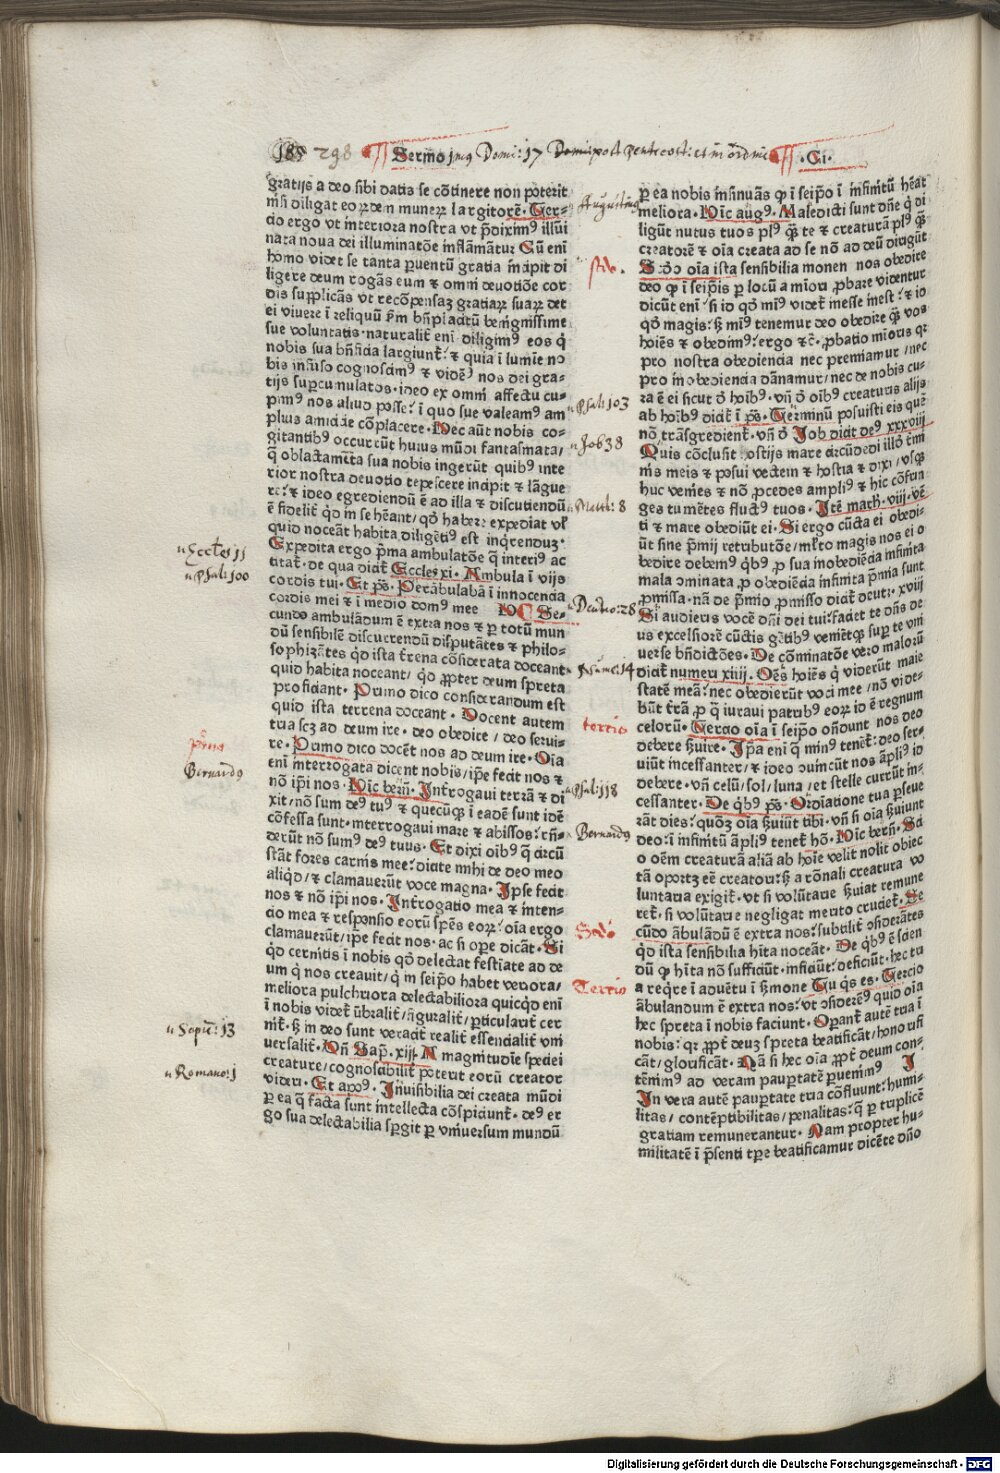 185 298 Sermo jmus Domi: 17 post pentecost: et in ordine .CI.
gratijs a deo sibi datis se cōtinere non poterit
nisi diligat eorūdem munerū largitorē. Ter-
cio ergo vt interiora nostra vt p̄diximꝰ illūi
nata noua dei illuminatōe inflāmātur Cū eni
homo videt se tanta puentū gratia incipit di
ligere deum rogās eum & omni deuotiōe cor
dis supplicās vt recōpensaz gratiarū suarū det
ei viuere i reliquū scḋm bn̄placitū benignissime
sue voluntatis. naturalit̄ eni diligimꝰ eos q̇
nobis sua bn̄ficia largiunt̄. & quia i lumīe no
bis infuso cognoscimꝰ & videmꝰ nos dei gra-
tijs supcumulatos. ideo ex omni affectu cu-
pimꝰ nos aliud posse. i quo sue valeamꝰ am
plius amicicie cōplacere. Hec aūt nobis co-
gitantibꝰ occurrūt huius mūdi fantasmata/
q̄ oblectamēta sua nobis ingerūt quibꝰ inte
rior nostra deuotio tepescere incipit & lāgue
re. & ideo egrediendū ē ad illa & discutiendū
ē fidelit̄ qd in se hēant/ qd habere expediat vl̓
quid noceāt habita diligēti est inqrenduz.
Expedita ergo p̄ma ambulatōe q̄ interiꝰ ac
titat̄. de qua dicit̄ Eccles xi. Ambula i vijs
cordis tui. Et ps. Perābulabā i innocencia
cordis mei & i medio domꝰ mee Sec
cundo ambulādum ē extra nos & p totū mun
dū sensibilē discurrendū disputātes & philo-
sophizātes qd ista t̄rena cōsiderata doceant
quid habita noceant/ qd propter deum spreta
proficiant. Primo dico considerandum est
quid ista terrena doceant. Docent autem
tria scz ad deum ire. deo obedire/ deo serui-
re. Primo dico docēt nos ad deum ire. Oīa
eni interrogata dicent nobis/ ip̄e fecit nos &
nō ip̄i nos. Hic bern̄. Intrrogaui terrā & di
xit/ nō sum deꝰ tuꝰ & quecūqꝫ i eadē sunt idē
cōfessa sunt. interrogaui mare & abissos. rn̄-
derūt nō sumꝰ deꝰ tuus. Et dixi oibꝰ q̄ circū
stāt fores carnis mee. dicite mihi de deo meo
aliqd/ & clamauerūt voce magna. Ipse fecit
nos & nō ip̄i nos. Int̄rogatio mea & inten-
cio mea & responsio eorū sp̄es eorū. oīa ergo
clamauerūt/ ip̄e fecit nos. ac si ope dicāt. Si
qd cernitis i nobis qd delectat festīate ad de
um q̇ nos creauit/ q̇ in seipo habet veriora/
meliora pulchriora delectabiliora quicqd eni
i nobis videt̄ vmbralit̄/ figuralit̄/ pticularit̄ cer
nit̄. sꝫ in deo sunt veracit̄ realit̄ essencialit̄ vni
uersalit̄. Vn̄ Sap. xiij. A magnitudīe speciei
creature/ cognoscibilit̄ poterit eorū creator
videri. Et apoꝰ. Inuisibilia dei creata mūdi
p ea q̄ facta sunt intellecta cōspiciunt̄. deꝰ er
go sua delectabilia spgit p vniuersum mundū
Eccles 11
Psal: 100
p̄ma
Bernardꝰ
Sapie: 13
Romano: 1
p ea nobis insinuās qꝫ i seipō i infinitū hēat
meliora. Hic augꝰ. Maledicti sunt dn̄e q̇ di
ligūt nutus tuos plꝰ qꝫ te & creaturā plꝰ qꝫ
creatorē & oīa creata ad se nō ad deū dirigūt
Secūdo oīa ista sensibilia monen nos obedire
deo qꝫ i seipis p locū a miori pbare videntur
dicūt eni. si id qd minꝰ videt̄ inesse inest. & id
qd magis. sꝫ minꝰ tenemur deo obedire qꝫ vos
hoīes & obedimꝰ. ergo &c. pbatio minoris qr
pro nostra obediencia nec premiamur/ nec
pro inobediencia dānamur/ nec de nobis cu-
ra ē ei sicut d hoibꝰ. vn̄ d oibꝰ creaturis alijs
ab hoibꝰ dicit̄ i ps. Terminū posuisti eis quē
nō trāsgredient̄. vn̄ d Job dicit deꝰ xxxviij
Quis cōclusit hostijs mare circūdedi illd t̄mi
nis meis & posui vectem & hostia & dixi/ vsqꝫ
huc venies & nō pcedes ampliꝰ & hic cōfrin
ges tumētes fluctꝰ tuos. Itē math. viij. vē
ti & mare obediūt ei. Si ergo cūcta ei obedi-
ūt sine p̄mij retributōe/ ml̄to magis nos ei o
bedire debemꝰ qbꝰ p sua inobediēcia infinita
mala cōminata p obediēcia infinita p̄mia sunt
pmissa. nā de p̄mio pmisso dicit̄ deut. xxviij
Si audieris vocē dn̄i dei tui. faciet te dn̄s de
us excelsiorē cūctis gētibꝰ venietqꝫ sup te vni
uerse bn̄dictōes. De cōminatōe vero malorū
dicit̄ numeri xiiij. Oēs hoies q̇ viderūt maie
statē meā. nec obedierūt voci mee/ nō vide-
būt t̄rā p q̄ iuraui patribꝰ eorū id ē regnum
celorū. Tercio oīa i seipō ondunt nos deo
debere seruire. Ipa eni q̄ minꝰ tenēt̄. deo ser-
uiūt incessanter/ & ideo cōuincūt nos ampliꝰ id
debere. vn̄ celū/ sol/ luna/ et stelle currūt in-
cessanter. De qbꝰ ps. Ordinatione tua pseue
rāt dies. quoꝫ oīa seruiūt tibi. vn̄ si oīa seruiunt
deo. i infinitū ampliꝰ tenet̄ ho. Hic bern̄. Si
o oem creaturā aliā ab hoīe velit nolit obiec
tā oportꝫ eē creatori. sꝫ a rōnali creatura vo
luntaria exigit̄. vt si volūtarie seruiat remune
ret̄. si volūtarie negligat merito crucret̄. Se
cūdo ābulādū ē extra nos. subtilit̄ cōsiderātes
qd ista sensibilia hita noceāt. De qbꝰ ē scien
dū qꝫ hita nō sufficiūt. inficiūt. deficiūt. hec tu
a reqre i aduētu i sermone Tu qs es. Tercio
ābulandum ē extra nos. vt cōsideremꝰ quid oīa
hec spreta i nobis faciunt. Operant̄ autē tria i
nobis. qr ppt̄ deuꝫ spreta beatificāt/ honorifi
cāt/ glorificāt. Nā si hec oīa ppt̄ deum con-
tēnimꝰ ad veram paupertatē puenimꝰ I
In vera autē paupertate tria cōfluunt. humi-
litas/ contēptibilitas/ penalitas. q̄ p triplicē
gratiam remunerantur. Nam propter hu-
militatē i p̄senti tpre beatificamur dicēte dn̄o
Augustinꝰ
Psal: 103
Job 38
Matth: 8
Deutro: 28
Nume: 14
tertio
Psal: 118
Bernardꝰ
Scdo
Tertio
Digitalisierung gefördert durch die Deutsche Forschungsgemeinschaft - DFG